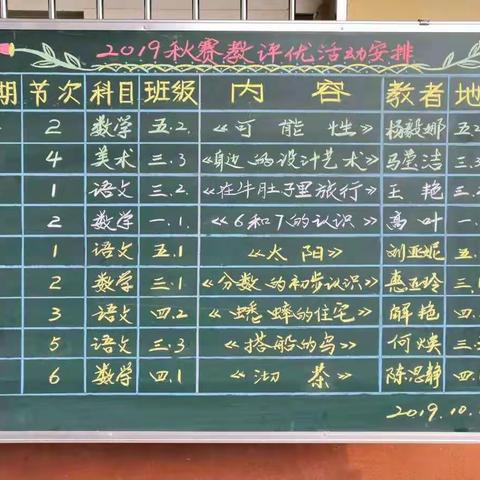 2019秋赛教评优活动安排
期 节次 科目 班级 内容 教者 地
2 数学 五.2. 《可能性》 杨毅娜 五.2
4 美术 三.3 《身边的设计艺术》 马莹洁 三.3
1 语文 三.2. 《在牛肚子里旅行》 王艳 三.2
2 数学 一.1. 《6和7的认识》 高叶 一.
1 语文 五.1 《太阳》 刘亚妮 五.
2 数学 三.1 《分数的初步认识》 惠亚玲 三.1
3 语文 四.2 《蟋蟀的住宅》 解艳 四.
5 语文 三.3 《搭船的鸟》 何焕 三.
6 数学 四.1 《沏茶》 陈思静 四.1
2019.10.